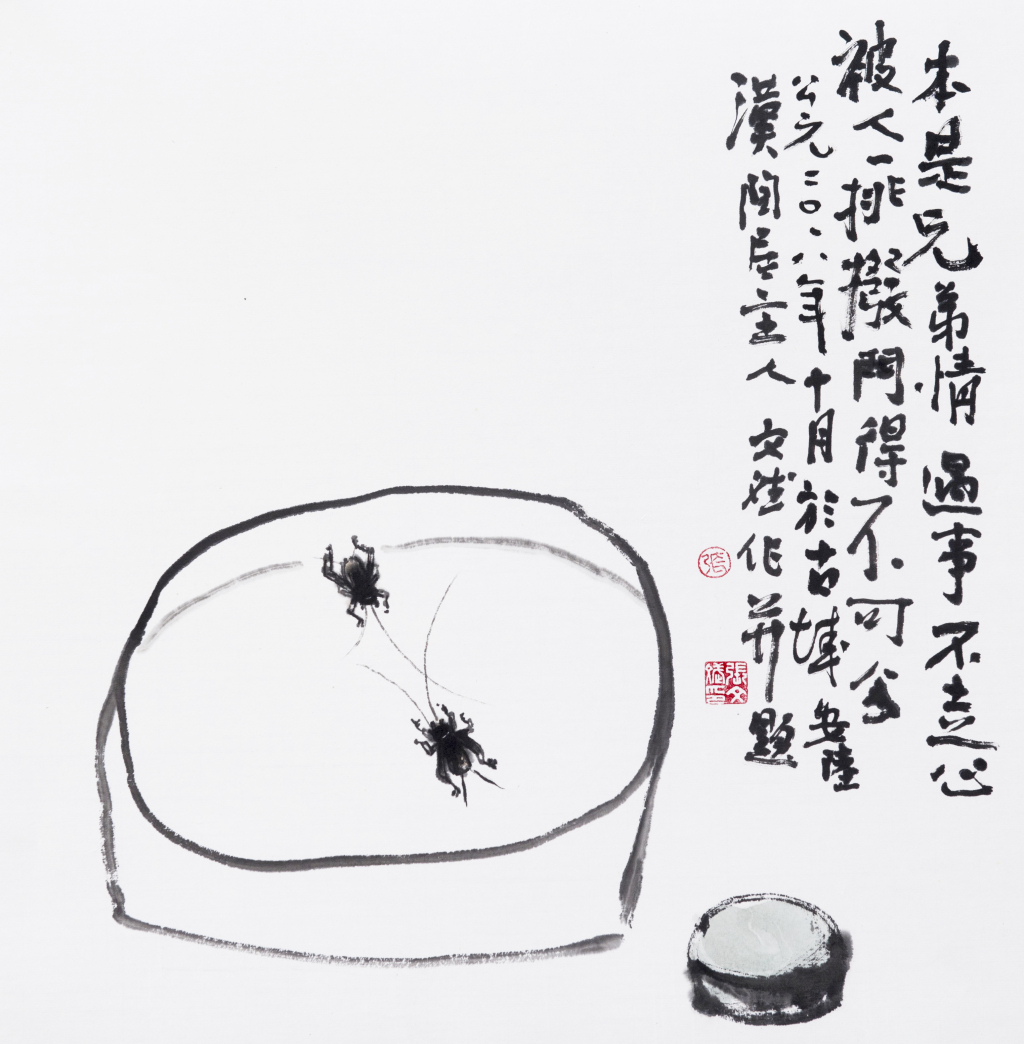 本是兄弟情遇事不走心
被人一挑撥鬥得不可分
公元二〇一八年十月於古城安陸
漢陶居主人文斌作并題
張
張文斌印